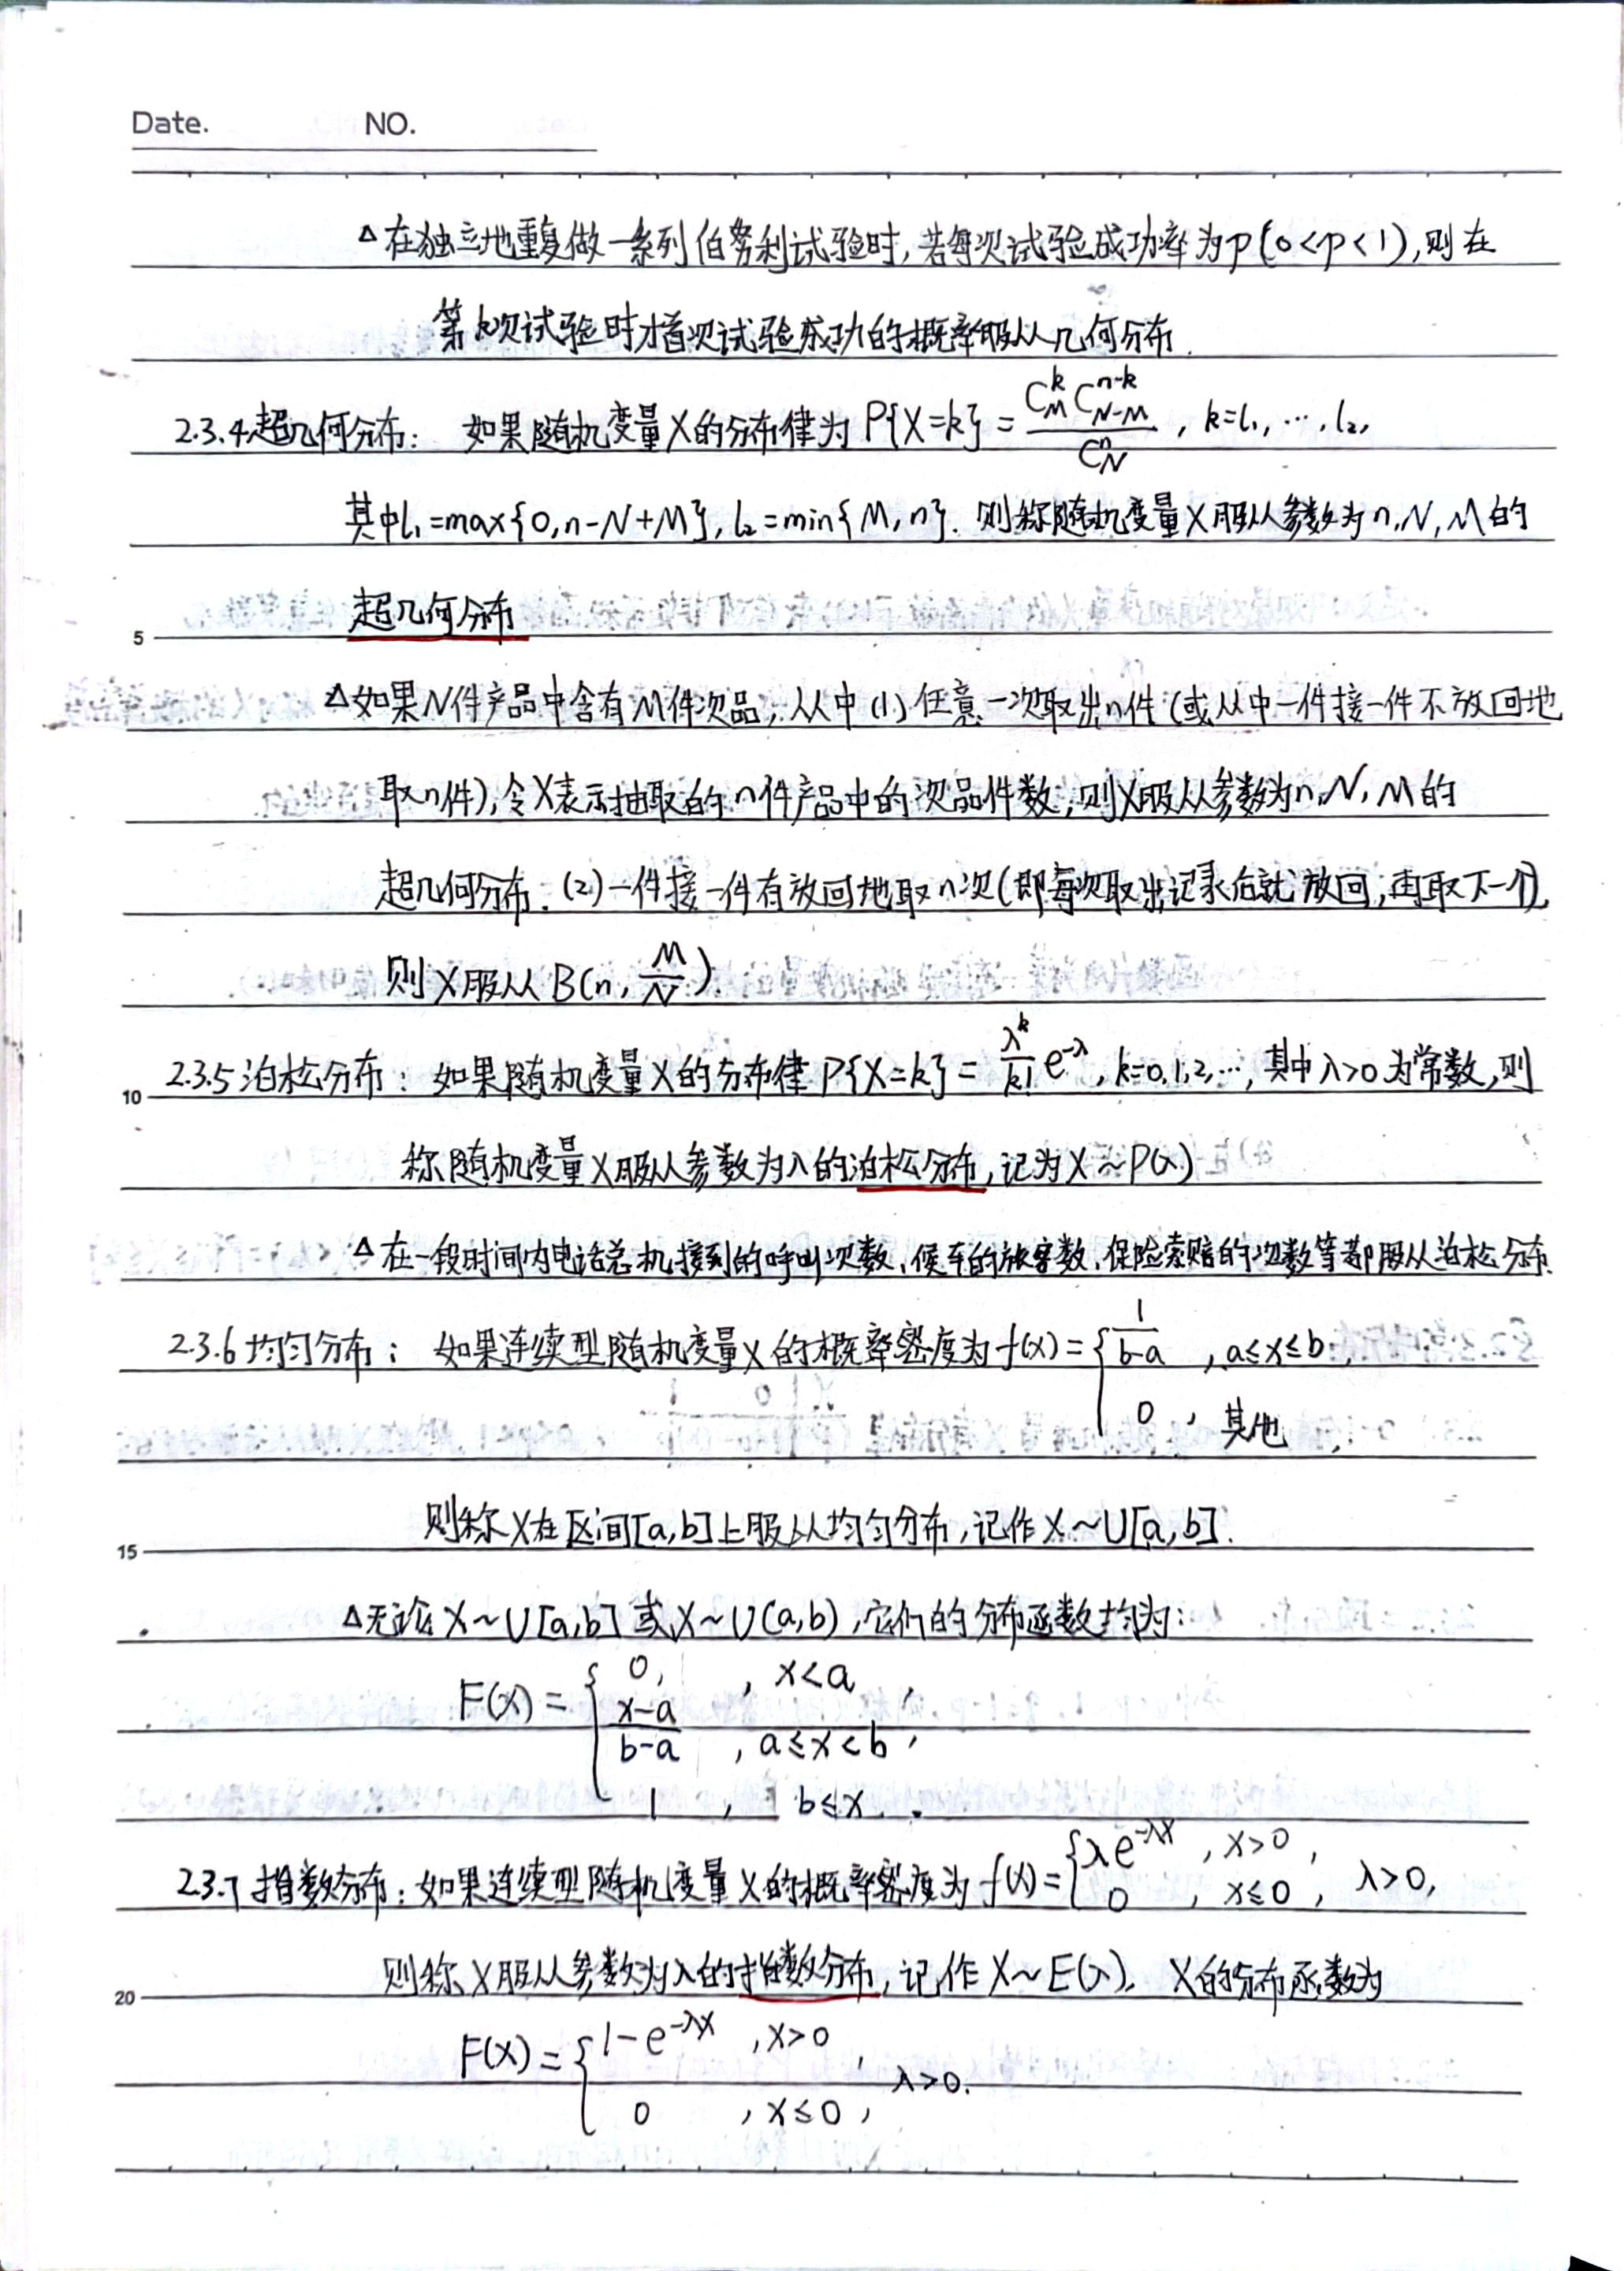 Date. NO.
△在独立地重复做一系列伯努利试验时,若每次试验成功率为p(0<p<1),则在
第k次试验时才首次试验成功的概率服从几何分布.
2.3.4超几何分布: 如果随机变量X的分布律为 P{X=k} = \frac{C_M^k C_{N-M}^{n-k}}{C_N^n}, k=l₁, …, l₂,
其中l₁=max{0,n-N+M}, l₂=min{M,n}. 则称随机变量X服从参数为n,N,M的
5 超几何分布
△如果N件产品中含有M件次品,从中(1)任意一次取出n件(或从中一件接一件不放回地
取n件),令X表示抽取的n件产品中的次品件数,则X服从参数为n,N,M的
超几何分布.(2)一件接一件有放回地取n次(即每次取出记录后就放回,再取下一个),
则X服从B(n, \frac{M}{N}).
10 2.3.5泊松分布: 如果随机变量X的分布律P{X=k} = \frac{λ^k}{k!}e^{-λ}, k=0,1,2,…,其中λ>0为常数,则
称随机变量X服从参数为λ的泊松分布,记为X~P(λ)
△在一段时间内电话总机接到的呼叫次数、候车的旅客数、保险索赔的次数等都服从泊松分布.
2.3.6均匀分布: 如果连续型随机变量X的概率密度为f(x)={ \frac{1}{b-a}, a≤x≤b,
0, 其他,
15 则称X在区间[a,b]上服从均匀分布,记作X~U[a,b].
△无论X~U[a,b]或X~U(a,b),它们的分布函数均为:
F(x)={ 0, , x<a,
\frac{x-a}{b-a}, a≤x<b,
1, b≤x.
2.3.7指数分布:如果连续型随机变量X的概率密度为f(x)={ λe^{-λx}, x>0,
0, x≤0, λ>0,
20 则称X服从参数为λ的指数分布,记作X~E(λ). X的分布函数为
F(x)={ 1-e^{-λx}, x>0,
0, x≤0, λ>0.